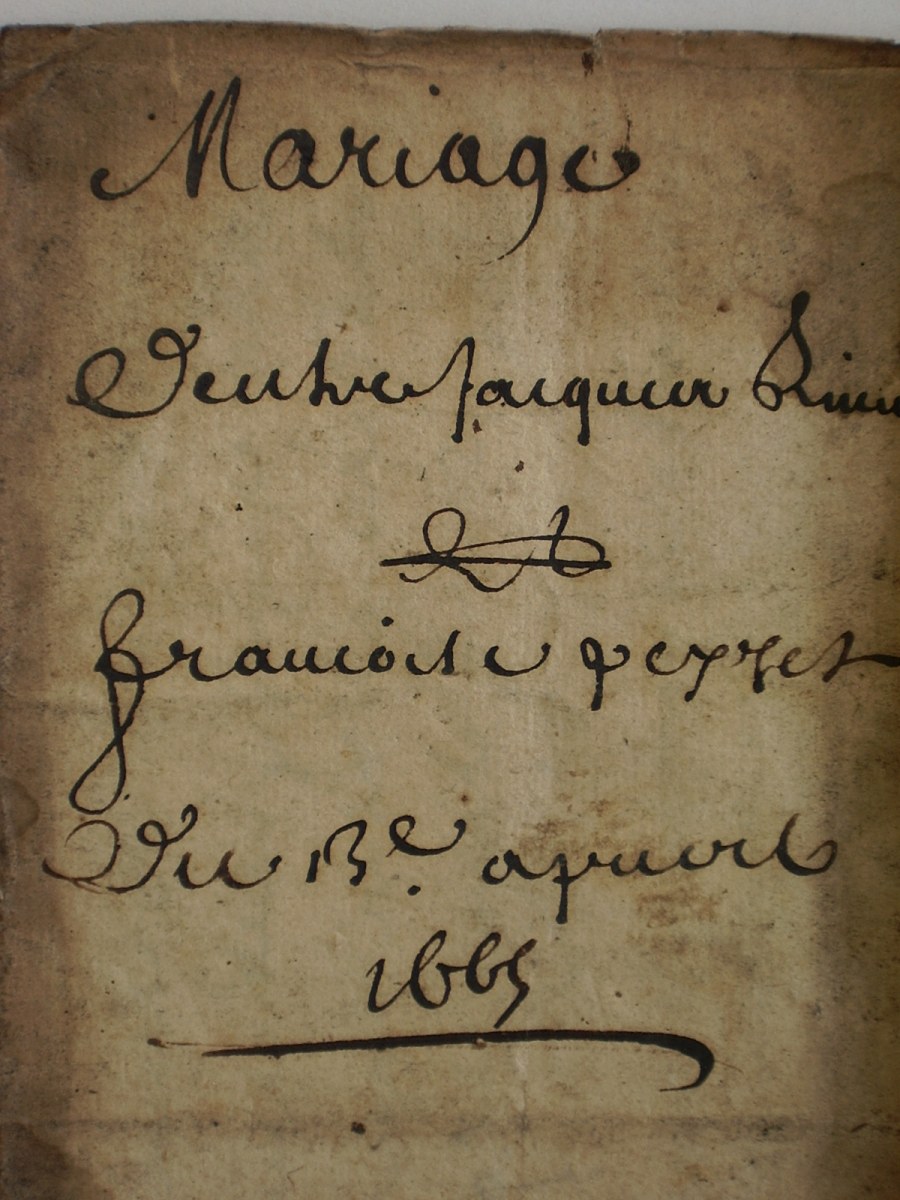 Mariage
Dentre Jacques
Et
francoise peyret
Du 13e. apvril
1665